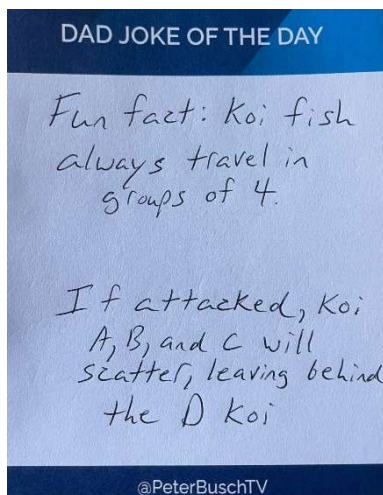 DAD JOKE OF THE DAY
Fun fact: Koi fish
always travel in
groups of 4.
If attacked, Koi
A, B, and C will
scatter, leaving behind
the D Koi
@PeterBuschTV